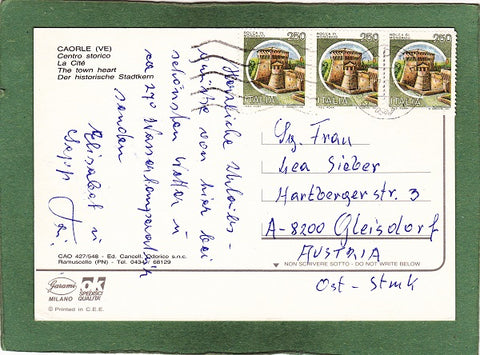 CAORLE (VE)
Centro storico
La Cité
The town heart
Der historische Stadtkern
Herzliche Urlaubs-
grüße von hier bei
schönstem Wetter u
ca 27° Wassertemperatur
senden
Elisabet u
Sepp
250
ITALIA
250
ITALIA
250
ITALIA
Sg. Frau
Lea Sieber
Hartbergerstr. 3
A-8200 Gleisdorf
AUSTRIA
NON SCRIVERE SOTTO - DO NOT WRITE BELOW
Ost-Stmk
CAO 427/548 - Ed. Cancell. Odorico s.n.c.
Ramuscello (PN) - Tel. 0434 68129
Garami
MILANO
SPEDIRCI
QUALITÀ
© Printed in C.E.E.